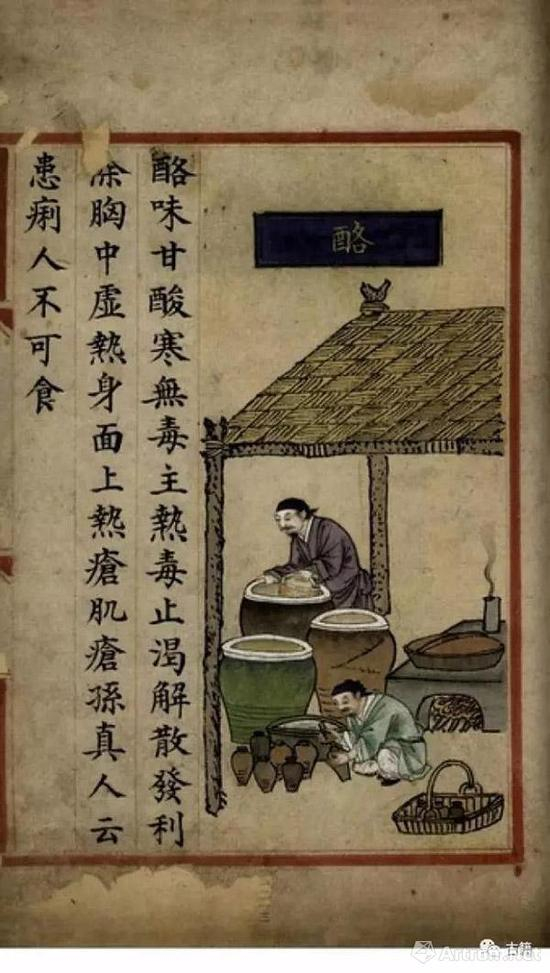 酪
酪味甘酸寒無毒主熱毒止渴解散發利
除胸中虛熱身面上熱瘡肌瘡孫真人云
患痢人不可食
古籍
Artron.Net